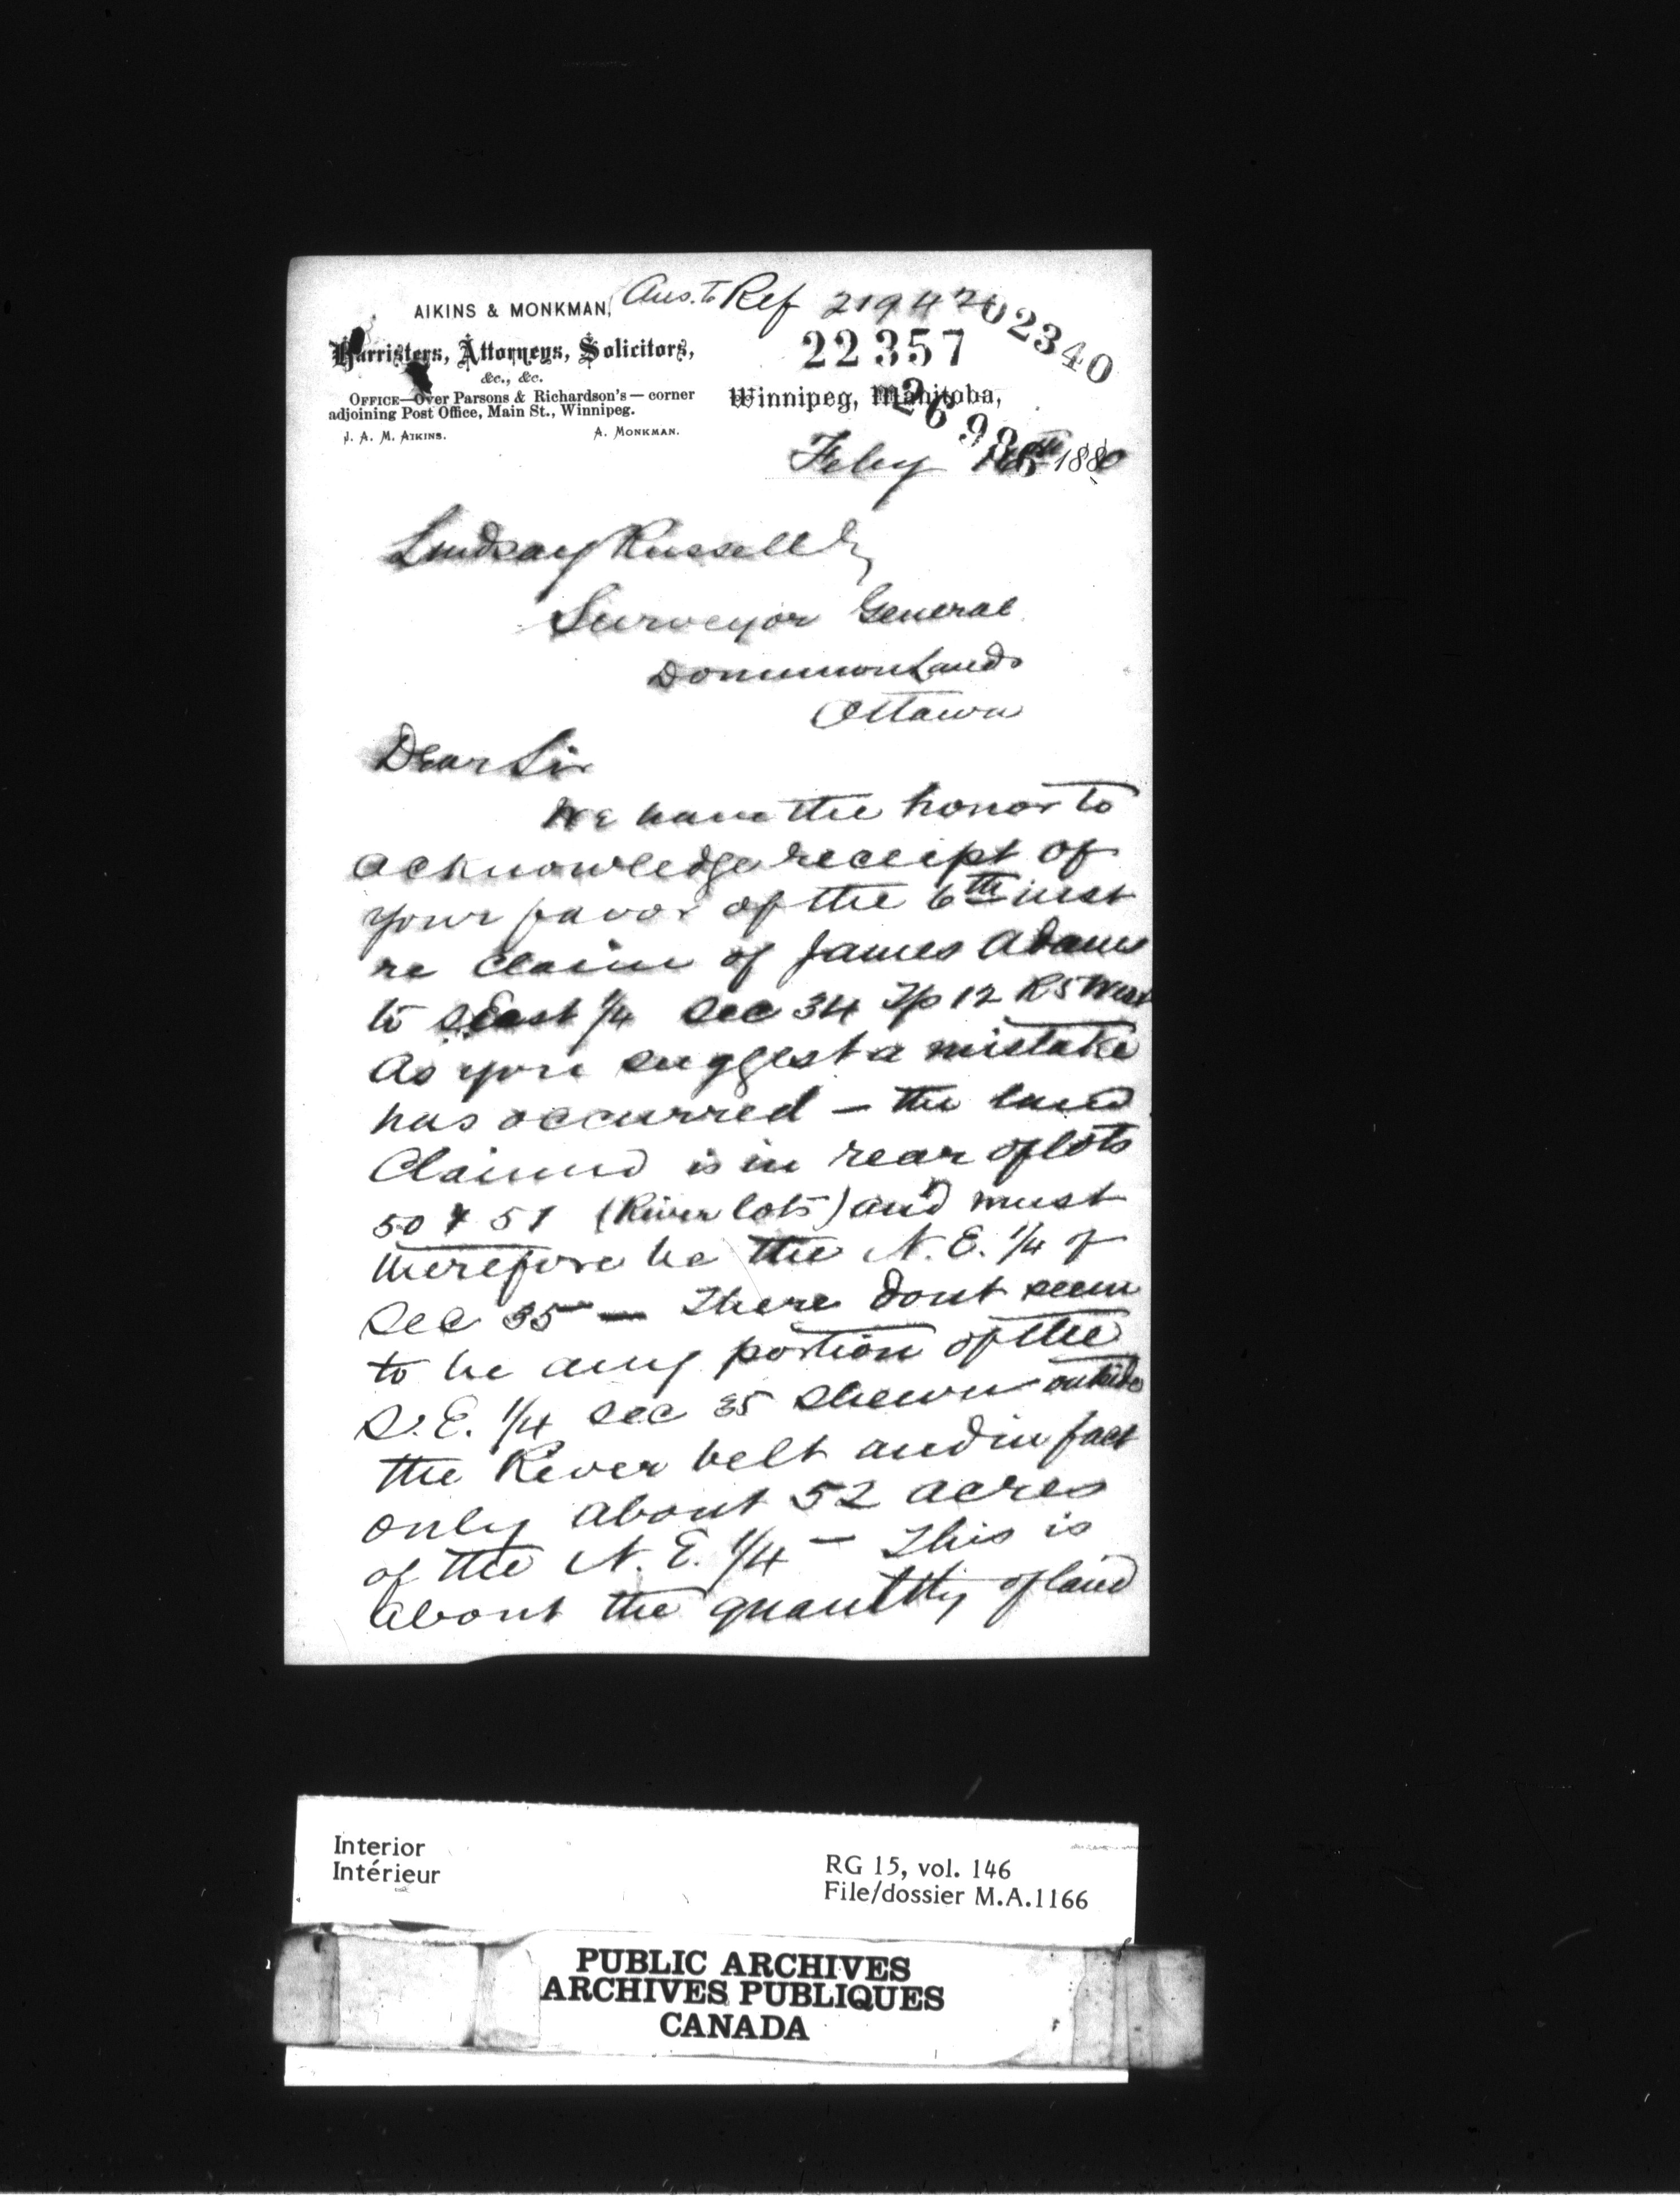 Ans. to Ref 21942
02340
AIKINS & MONKMAN,
22357
Barristers, Attorneys, Solicitors,
&c., &c.
OFFICE—Over Parsons & Richardson's — corner
adjoining Post Office, Main St., Winnipeg.
J. A. M. AIKINS. A. MONKMAN.
Winnipeg, Manitoba,
Feby 1880
Lindsay Russell
Surveyor General
Dominion Lands
Ottawa
Dear Sir
We have the honor to
acknowledge receipt of
your favor of the 6th inst
re claim of James Adams
to S East 1/4 Sec 34 Tp 12 R 5 West
As you suggest a mistake
has occurred — the land
Claimed is in rear of lots
50 & 51 (River lots) and must
therefore be the N. E. 1/4 of
Sec 35 — There dont seem
to be any portion of the
S. E. 1/4 Sec 35 shewn outside
the River belt and in fact
only about 52 acres
of the N. E. 1/4 — This is
about the quantity of land
Interior
Intérieur
RG 15, vol. 146
File/dossier M.A.1166
PUBLIC ARCHIVES
ARCHIVES PUBLIQUES
CANADA